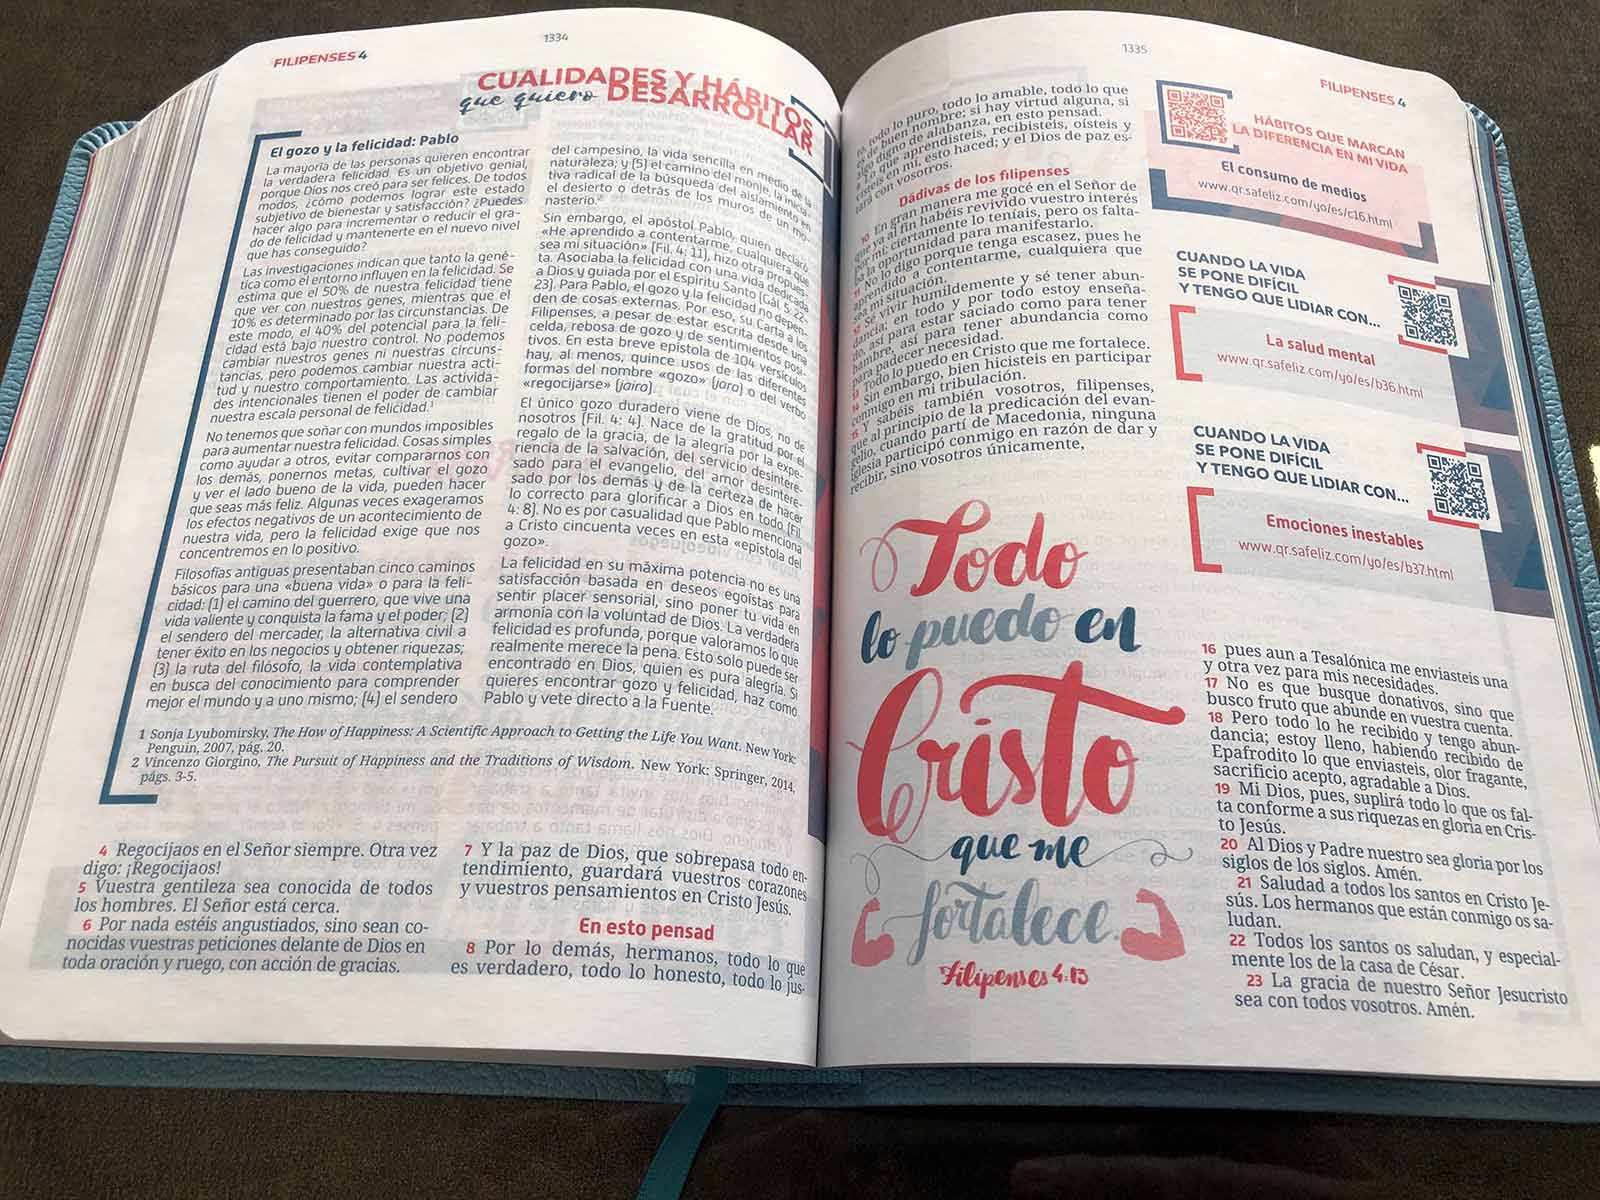 FILIPENSES 4
1334
CUALIDADES Y HÁBITOS
que quiero DESARROLLAR
El gozo y la felicidad: Pablo
La mayoría de las personas quieren encontrar
la verdadera felicidad. Es un objetivo genial,
porque Dios nos creó para ser felices. De todos
modos, ¿cómo podemos lograr este estado
subjetivo de bienestar y satisfacción? ¿Puedes
hacer algo para incrementar o reducir el gra-
do de felicidad y mantenerte en el nuevo nivel
que has conseguido?
Las investigaciones indican que tanto la gené-
tica como el entorno influyen en la felicidad. Se
estima que el 50% de nuestra felicidad tiene
que ver con nuestros genes, mientras que el
10% es determinado por las circunstancias. De
este modo, el 40% del potencial para la feli-
cidad está bajo nuestro control. No podemos
cambiar nuestros genes ni nuestras circuns-
tancias, pero podemos cambiar nuestra acti-
tud y nuestro comportamiento. Las activida-
des intencionales tienen el poder de cambiar
nuestra escala personal de felicidad.¹
No tenemos que soñar con mundos imposibles
para aumentar nuestra felicidad. Cosas simples
como ayudar a otros, evitar compararnos con
los demás, ponernos metas, cultivar el gozo
y ver el lado bueno de la vida, pueden hacer
que seas más feliz. Algunas veces exageramos
los efectos negativos de un acontecimiento de
nuestra vida, pero la felicidad exige que nos
concentremos en lo positivo.
Filosofías antiguas presentaban cinco caminos
básicos para una «buena vida» o para la feli-
cidad: [1] el camino del guerrero, que vive una
vida valiente y conquista la fama y el poder; [2]
el sendero del mercader, la alternativa civil a
tener éxito en los negocios y obtener riquezas;
[3] la ruta del filósofo, la vida contemplativa
en busca del conocimiento para comprender
mejor el mundo y a uno mismo; [4] el sendero
del campesino, la vida sencilla en medio de la
naturaleza; y [5] el camino del monje, la inicia-
tiva radical de la búsqueda del aislamiento en
el desierto o detrás de los muros de un mo-
nasterio.²
Sin embargo, el apóstol Pablo, quien declaró
«He aprendido a contentarme, cualquiera que
sea mi situación» [Fil. 4: 11], hizo otra propues-
ta. Asociaba la felicidad con una vida dedicada
a Dios y guiada por el Espíritu Santo [Gál. 5: 22-
23]. Para Pablo, el gozo y la felicidad no depen-
den de cosas externas. Por eso, su Carta a los
Filipenses, a pesar de estar escrita desde una
celda, rebosa de gozo y de sentimientos posi-
tivos. En esta breve epístola de 104 versículos
hay, al menos, quince usos de las diferentes
formas del nombre «gozo» [jaro] o del verbo
«regocijarse» [jairo].
El único gozo duradero viene de Dios, no de
nosotros [Fil. 4: 4]. Nace de la gratitud por el
regalo de la gracia, de la alegría por la expe-
riencia de la salvación, del servicio desintere-
sado para el evangelio, del amor desintere-
sado por los demás y de la certeza de hacer
lo correcto para glorificar a Dios en todo [Fil.
4: 8]. No es por casualidad que Pablo menciona
a Cristo cincuenta veces en esta «epístola del
gozo».
La felicidad en su máxima potencia no es una
satisfacción basada en deseos egoístas para
sentir placer sensorial, sino poner tu vida en
armonía con la voluntad de Dios. La verdadera
felicidad es profunda, porque valoramos lo que
realmente merece la pena. Esto solo puede ser
encontrado en Dios, quien es pura alegría. Si
quieres encontrar gozo y felicidad, haz como
Pablo y vete directo a la Fuente.
1 Sonja Lyubomirsky, The How of Happiness: A Scientific Approach to Getting the Life You Want. New York:
Penguin, 2007, pág. 20.
2 Vincenzo Giorgino, The Pursuit of Happiness and the Traditions of Wisdom. New York: Springer, 2014,
págs. 3-5.
4 Regocijaos en el Señor siempre. Otra vez
digo: ¡Regocijaos!
5 Vuestra gentileza sea conocida de todos
los hombres. El Señor está cerca.
6 Por nada estéis angustiados, sino sean co-
nocidas vuestras peticiones delante de Dios en
toda oración y ruego, con acción de gracias.
7 Y la paz de Dios, que sobrepasa todo en-
tendimiento, guardará vuestros corazones
y vuestros pensamientos en Cristo Jesús.
En esto pensad
8 Por lo demás, hermanos, todo lo que
es verdadero, todo lo honesto, todo lo jus-
1335
FILIPENSES 4
to, todo lo puro, todo lo amable, todo lo que
es de buen nombre; si hay virtud alguna, si
algo digno de alabanza, en esto pensad.
Lo que aprendisteis, recibisteis, oísteis y
visteis en mí, esto haced; y el Dios de paz es-
tará con vosotros.
Dádivas de los filipenses
10 En gran manera me gocé en el Señor de
que ya al fin habéis revivido vuestro interés
por mí; ciertamente lo teníais, pero os falta-
ba la oportunidad para manifestarlo.
11 No lo digo porque tenga escasez, pues he
aprendido a contentarme, cualquiera que
sea mi situación.
12 Sé vivir humildemente y sé tener abun-
dancia; en todo y por todo estoy enseña-
do, así para estar saciado como para tener
hambre, así para tener abundancia como
para padecer necesidad.
13 Todo lo puedo en Cristo que me fortalece.
14 Sin embargo, bien hicisteis en participar
conmigo en mi tribulación.
15 Y sabéis también vosotros, filipenses,
que al principio de la predicación del evan-
gelio, cuando partí de Macedonia, ninguna
iglesia participó conmigo en razón de dar y
recibir, sino vosotros únicamente,
Todo
lo puedo en
Cristo
que me
fortalece.
Filipenses 4:13
HÁBITOS QUE MARCAN
LA DIFERENCIA EN MI VIDA
El consumo de medios
www.qr.safeliz.com/yo/es/c16.html
CUANDO LA VIDA
SE PONE DIFÍCIL
Y TENGO QUE LIDIAR CON...
La salud mental
www.qr.safeliz.com/yo/es/b36.html
CUANDO LA VIDA
SE PONE DIFÍCIL
Y TENGO QUE LIDIAR CON...
Emociones inestables
www.qr.safeliz.com/yo/es/b37.html
16 pues aun a Tesalónica me enviasteis una
y otra vez para mis necesidades.
17 No es que busque donativos, sino que
busco fruto que abunde en vuestra cuenta.
18 Pero todo lo he recibido y tengo abun-
dancia; estoy lleno, habiendo recibido de
Epafrodito lo que enviasteis, olor fragante,
sacrificio acepto, agradable a Dios.
19 Mi Dios, pues, suplirá todo lo que os fal-
ta conforme a sus riquezas en gloria en Cris-
to Jesús.
20 Al Dios y Padre nuestro sea gloria por los
siglos de los siglos. Amén.
21 Saludad a todos los santos en Cristo Je-
sús. Los hermanos que están conmigo os sa-
ludan.
22 Todos los santos os saludan, y especial-
mente los de la casa de César.
23 La gracia de nuestro Señor Jesucristo
sea con todos vosotros. Amén.